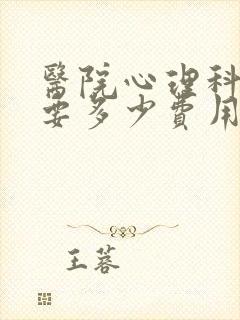 醫院心理科
要多少費用
王蓉